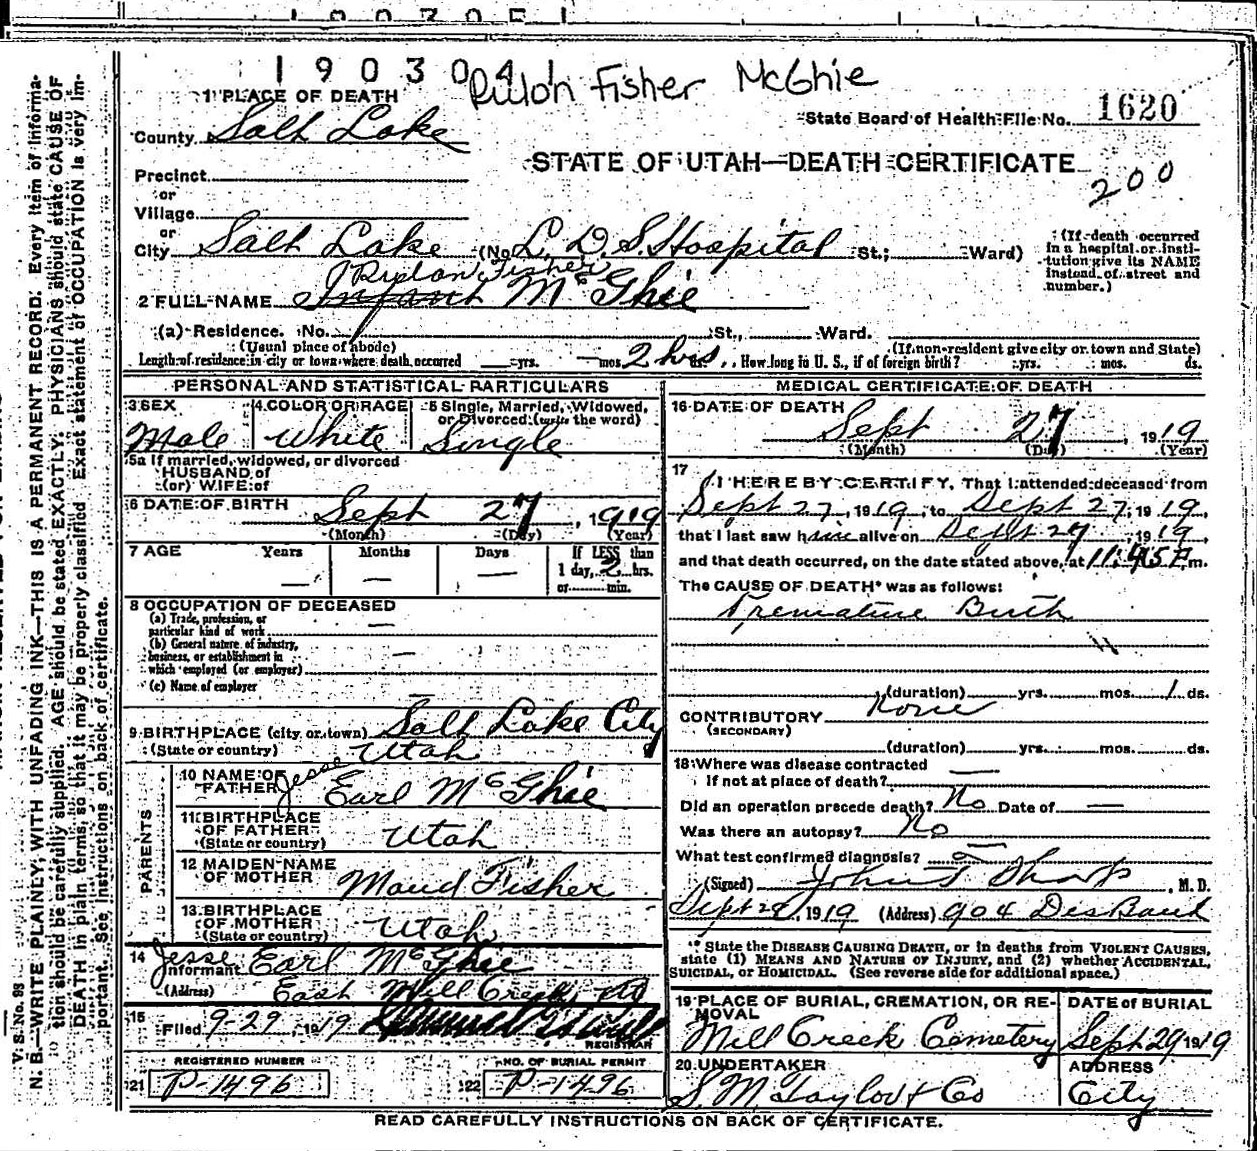 1903041
Rulon Fisher McGhie
1 PLACE OF DEATH
County Salt Lake
State Board of Health File No. 1620
STATE OF UTAH—DEATH CERTIFICATE
200
Precinct
or
Village
or
City Salt Lake (No. L. D. S. Hospital St.; Ward)
(If death occurred in a hospital or institution give its NAME instead of street and number.)
Rulon Fisher
2 FULL NAME Infant McGhie
(a) Residence. No. St., Ward.
(Usual place of abode) (If non-resident give city or town and State)
Length of residence in city or town where death occurred yrs. mos. 2 hrs ds. How long in U. S., if of foreign birth? yrs. mos. ds.
PERSONAL AND STATISTICAL PARTICULARS
3 SEX Male
4 COLOR OR RACE White
5 Single, Married, Widowed, or Divorced (write the word) Single
5a If married, widowed, or divorced
HUSBAND of
(or) WIFE of
6 DATE OF BIRTH Sept 27, 1919
(Month) (Day) (Year)
7 AGE Years Months Days If LESS than
— — — 1 day, 2 hrs.
or min.
8 OCCUPATION OF DECEASED
(a) Trade, profession, or
particular kind of work —
(b) General nature of industry,
business, or establishment in
which employed (or employer) —
(c) Name of employer —
9 BIRTHPLACE (city or town) Salt Lake City
(State or country) Utah
PARENTS
10 NAME OF FATHER Jesse Earl McGhie
11 BIRTHPLACE OF FATHER
(State or country) Utah
12 MAIDEN NAME OF MOTHER Maud Fisher
13 BIRTHPLACE OF MOTHER
(State or country) Utah
14 Informant Jesse Earl McGhie
(Address) East Mill Creek
15 Filed 9-29, 1919
REGISTRAR
REGISTERED NUMBER
21 P-1496
NO. OF BURIAL PERMIT
22 P-1496
MEDICAL CERTIFICATE OF DEATH
16 DATE OF DEATH Sept 27, 1919
(Month) (Day) (Year)
17 I HEREBY CERTIFY, That I attended deceased from
Sept 27, 1919, to Sept 27, 1919,
that I last saw him alive on Sept 27, 1919,
and that death occurred, on the date stated above, at 11:45 P m.
The CAUSE OF DEATH* was as follows:
Premature Birth
(duration) yrs. mos. 1 ds.
CONTRIBUTORY None
(SECONDARY)
(duration) yrs. mos. ds.
18 Where was disease contracted
if not at place of death? —
Did an operation precede death? No Date of —
Was there an autopsy? No
What test confirmed diagnosis? —
(Signed) John F Sharp, M. D.
Sept 29, 1919 (Address) 904
* State the DISEASE CAUSING DEATH, or in deaths from VIOLENT CAUSES,
state (1) MEANS AND NATURE OF INJURY, and (2) whether ACCIDENTAL,
SUICIDAL, or HOMICIDAL. (See reverse side for additional space.)
19 PLACE OF BURIAL, CREMATION, OR REMOVAL
Mill Creek Cemetery
DATE of BURIAL
Sept 29 1919
20 UNDERTAKER
S. M. Taylor & Co
ADDRESS
City
READ CAREFULLY INSTRUCTIONS ON BACK OF CERTIFICATE.
V. S. No. 98
N. B.—WRITE PLAINLY, WITH UNFADING INK—THIS IS A PERMANENT RECORD. Every item of information should be carefully supplied. AGE should be stated EXACTLY. PHYSICIANS should state CAUSE OF DEATH in plain terms, so that it may be properly classified. Exact statement of OCCUPATION is very important. See instructions on back of certificate.